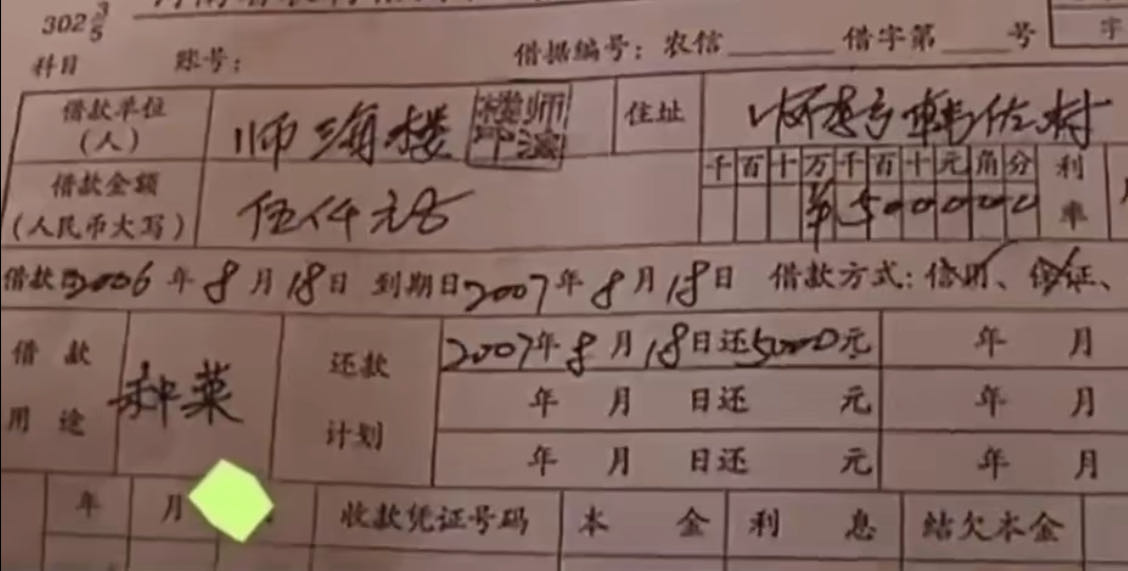 302 3/5
科目 账号： 借据编号：农信 借字第 号 字
借款单位（人） 师海楼 住址 村
借款金额（人民币大写） 伍仟元 千百十万千百十元角分 ¥500000 利率
借款日2006年8月18日 到期日2007年8月18日 借款方式：信用、保证、
借款用途 种菜 还款计划 2007年8月18日还5000元 年 月
年 月 日还 元 年 月
年 月 日还 元 年 月
年 月 收款凭证号码 本金 利息 结欠本金